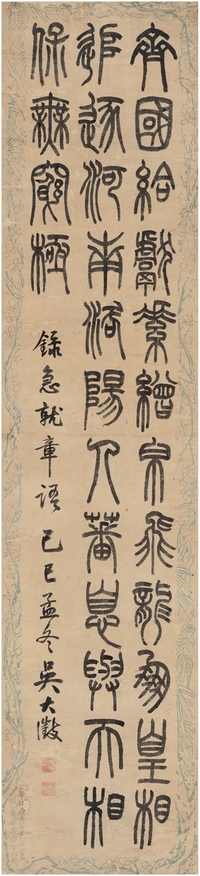 齊國給獻素繒帛飛龍鳳皇相
追逐河南洛陽人蕃息與天相
保無窮極
錄急就章語己巳孟冬吳大澂